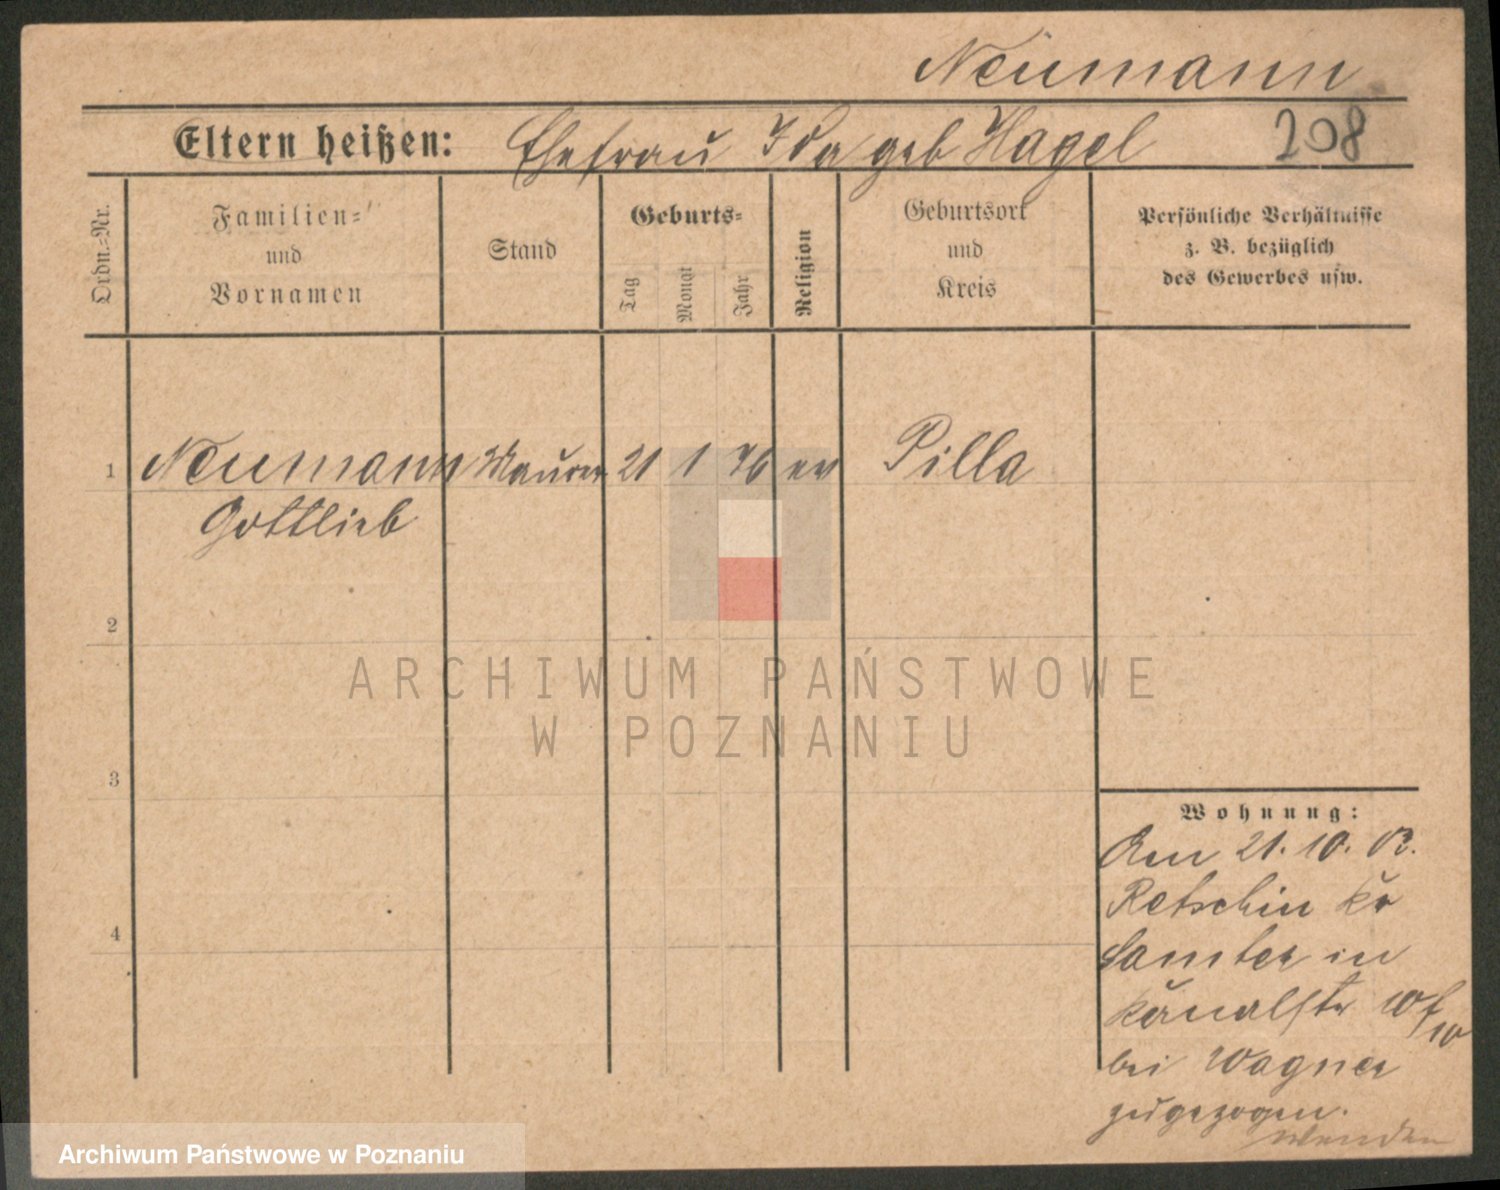 Neumann
Eltern heißen: Ehefrau Ida geb Hagel 208
Ordn.=Nr.
Familien=
und
Vornamen
Stand
Geburts=
Tag
Monat
Jahr
Religion
Geburtsort
und
Kreis
Persönliche Verhältnisse
z. B. bezüglich
des Gewerbes usw.
1 Neumann Maurer 21 1 76 ev Pilla
Gottlieb
2
3
4
Wohnung:
Am 21. 10. 03.
Retschin Kr
Samter in
Kanalstr
bei Wagner
zugezogen.
wenden
ARCHIWUM PAŃSTWOWE
W POZNANIU
Archiwum Państwowe w Poznaniu